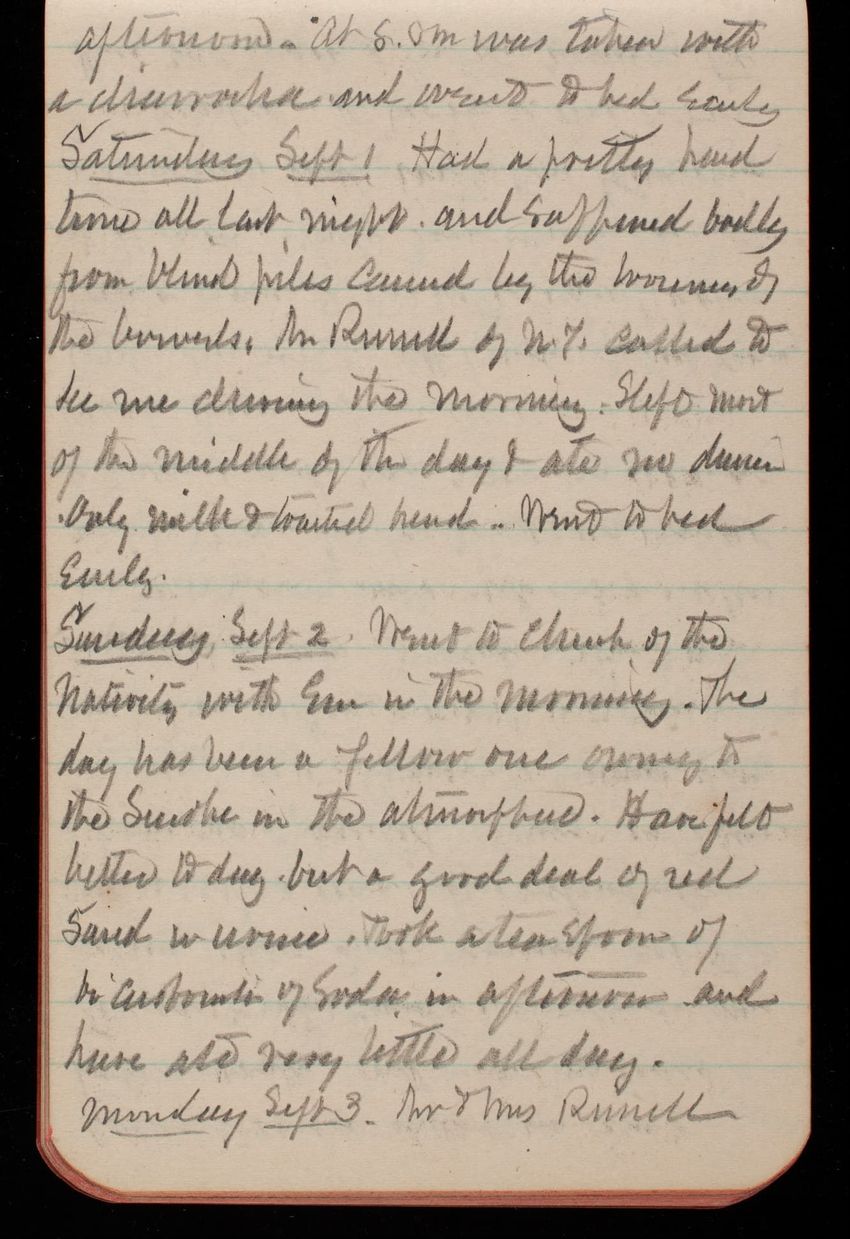 afternoon. At 5. Pm was taken with
a diarrohea and went to bed Early
Saturday Sept 1 Had a pretty hard
time all last night. and Suffered badly
from blind piles caused by the looseness of
the bowels. Mr Russell of N.Y. called to
see me during the morning. Slept most
of the middle of the day & ate no dinner
Only milk & toasted bread. Went to bed
Early.
Sunday, Sept 2. Went to Church of the
Nativity with Em in the morning. The
day has been a yellow one owing to
the Smoke in the atmosphere. Have felt
better to day but a good deal of red
Sand in urine. Took a tea Spoon of
bi Carbonate of Soda in afternoon and
have ate very little all day.
Monday Sept 3. Mr & Mrs Russell